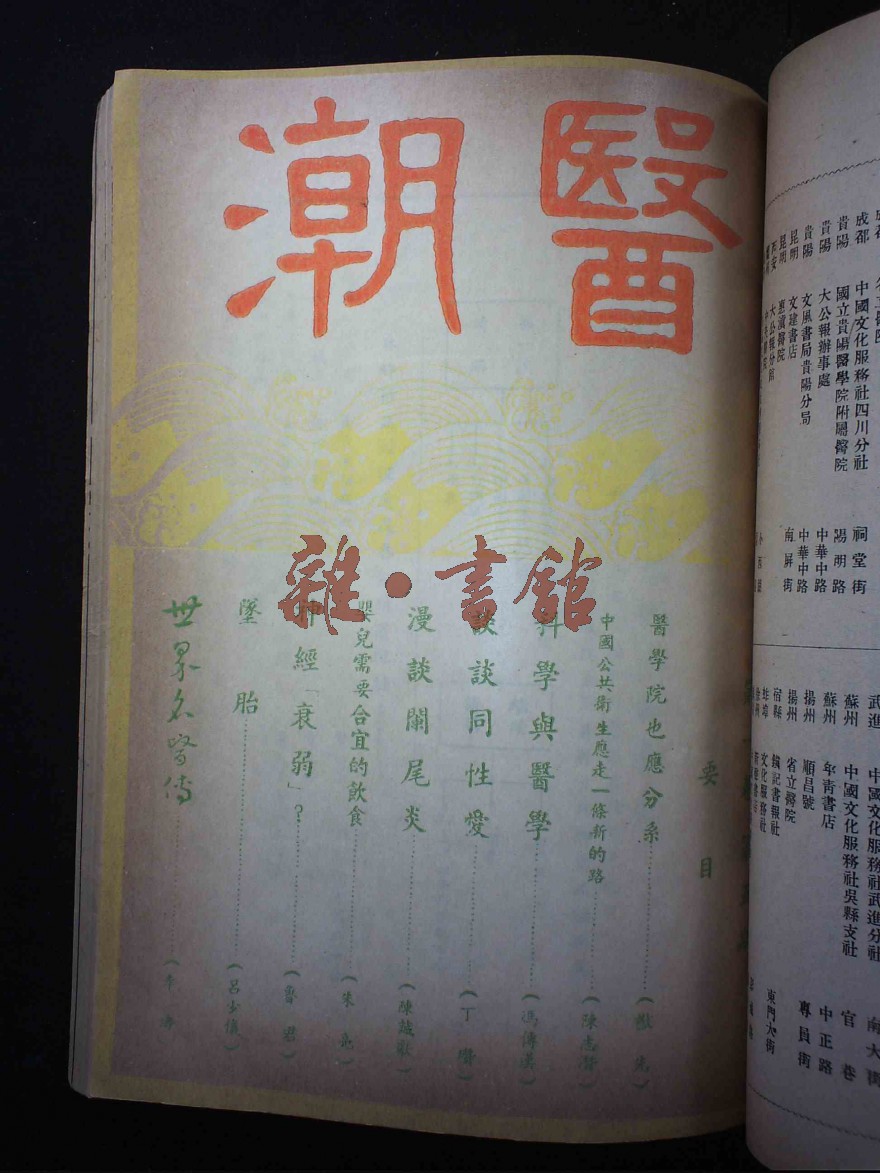 醫潮
雜·書館
要目
醫學院也應分系
中國公共衛生應走一條新的路(陳志潛)
科學與醫學(馮傳漢)
談談同性愛(丁瓚)
漫談闌尾炎
嬰兒需要合宜的飲食(朱亮)
神經「衰弱」?(魯君)
墜胎(呂少懷)
世界名醫傳
成都 中國文化服務社四川分社 祠堂街
貴陽 國立貴陽醫學院附屬醫院 陽明路
貴陽 大公報辦事處 中華中路
貴陽 文風書局貴陽分局 中華中路
昆明 文建書店 南屏街
昆明 惠滇醫院
西安 大公報分館
武進 中國文化服務社武進分社 南大街
蘇州 中國文化服務社吳縣支社 官巷
蘇州 年青書店 中正路
揚州 順昌號 專員街
揚州 省立醫院
宿縣 書報社 東門大街
蚌埠 文化服務社